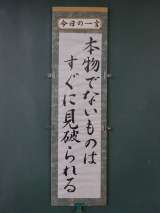 今日の一言
本物でないものは
すぐに見破られる